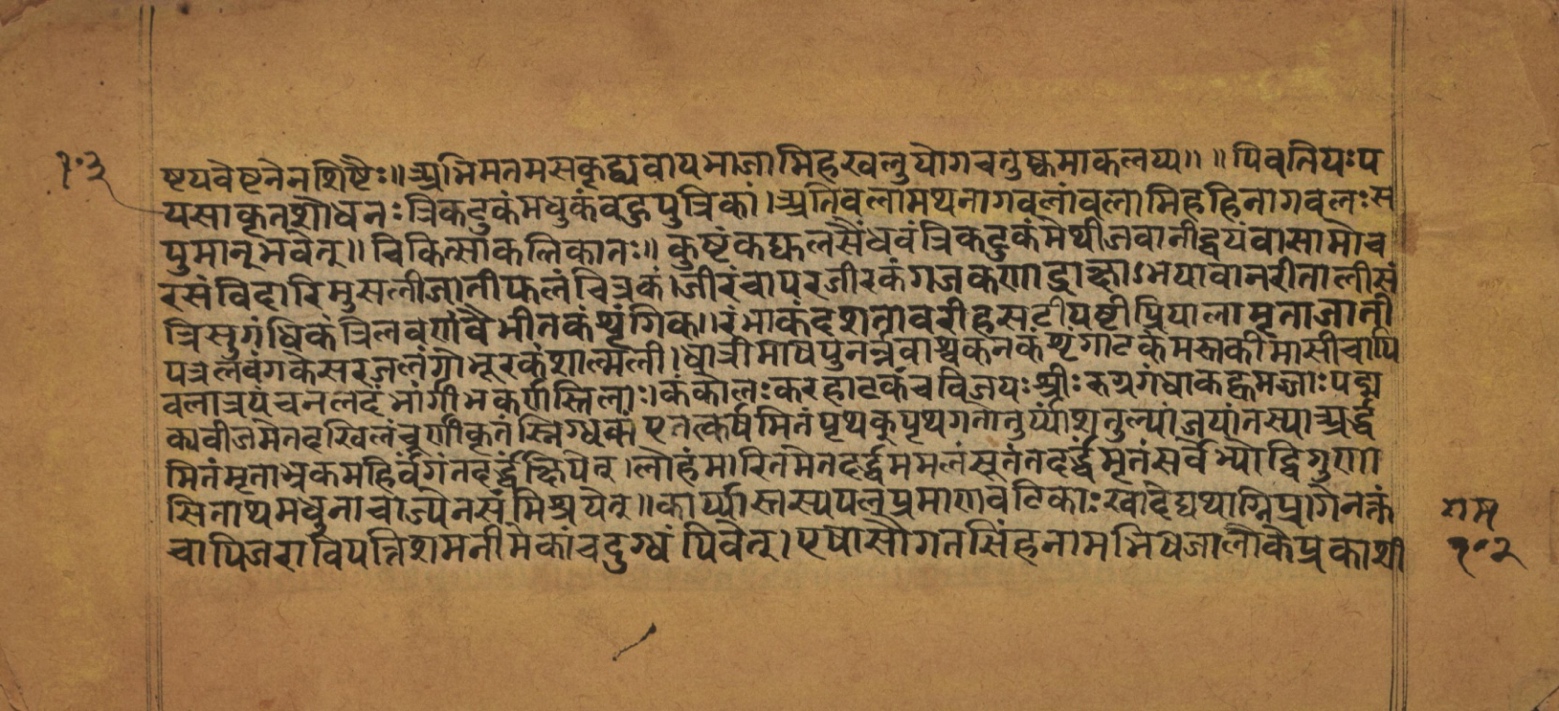 १०३
ष्टयवेष्टनेनशिष्टैः॥अभिमतमसकृद्यवायभाजामिहखलुयोगचतुष्कमाकलय्य॥ ॥पिवतियःप
यसाकृतशोधनःत्रिकटुकंमधुकंवहुपुत्रिकां।अतिवलामथनागवलांवलामिहहिनागवलःस
पुमान्भवेत्॥चिकित्साकलिकातः॥कुष्टंकट्फलसैंधवंत्रिकटुकंमेथीजवानीद्वयंवासामोच
रसंविदारिमुसलीजातीफलंचित्रकं।जीरंचापरजीरकंगजकणाद्राक्षाऽभयावानरीतालीसं
त्रिसुगंधिकंत्रिलवणंवैभीतकंशृंगिक॥रंभाकंदशतावरीहसटीयष्टीप्रियालामृताजाती
पत्रलवंगकेसरजलंगोक्षूरकंशाल्मली।धात्रीमाषपुनर्न्नवाश्चकनकंशृंगाटकंमस्तकीमासीचापि
वलात्रयंचनलदंभांर्गीभकर्णस्तिलाः।कंकोलःकरहाटकंचविजयःश्रीःरुग्रगंधाकह्वमज्जाःपद्म
कवीजमेतदखिलंचूर्णीकृतंस्निग्धकं।एतत्कर्षमितंपृथक्पृथगतोतुर्य्यांशतुल्यांजयांतस्याअर्द्ध
मितंमृताभ्रकमहिंर्वंगंतदर्द्धंक्षिपेत्।लोहंमारितमेतदर्द्धममलंसूतंतदर्द्धंमृतंसर्वेभ्योद्विगुणा
सिताथमधुनाचाज्येनसंमिश्रयेत्॥कार्य्यास्तस्यपलप्रमाणवटिकाःखादेद्यथाग्निप्रगेनक्तं
चापिजराविपत्तिशमनीमेकांचदुग्धंपिवेत्।एषासौगतसिंहनामभिषजालोकेप्रकाशी
राम
१०३